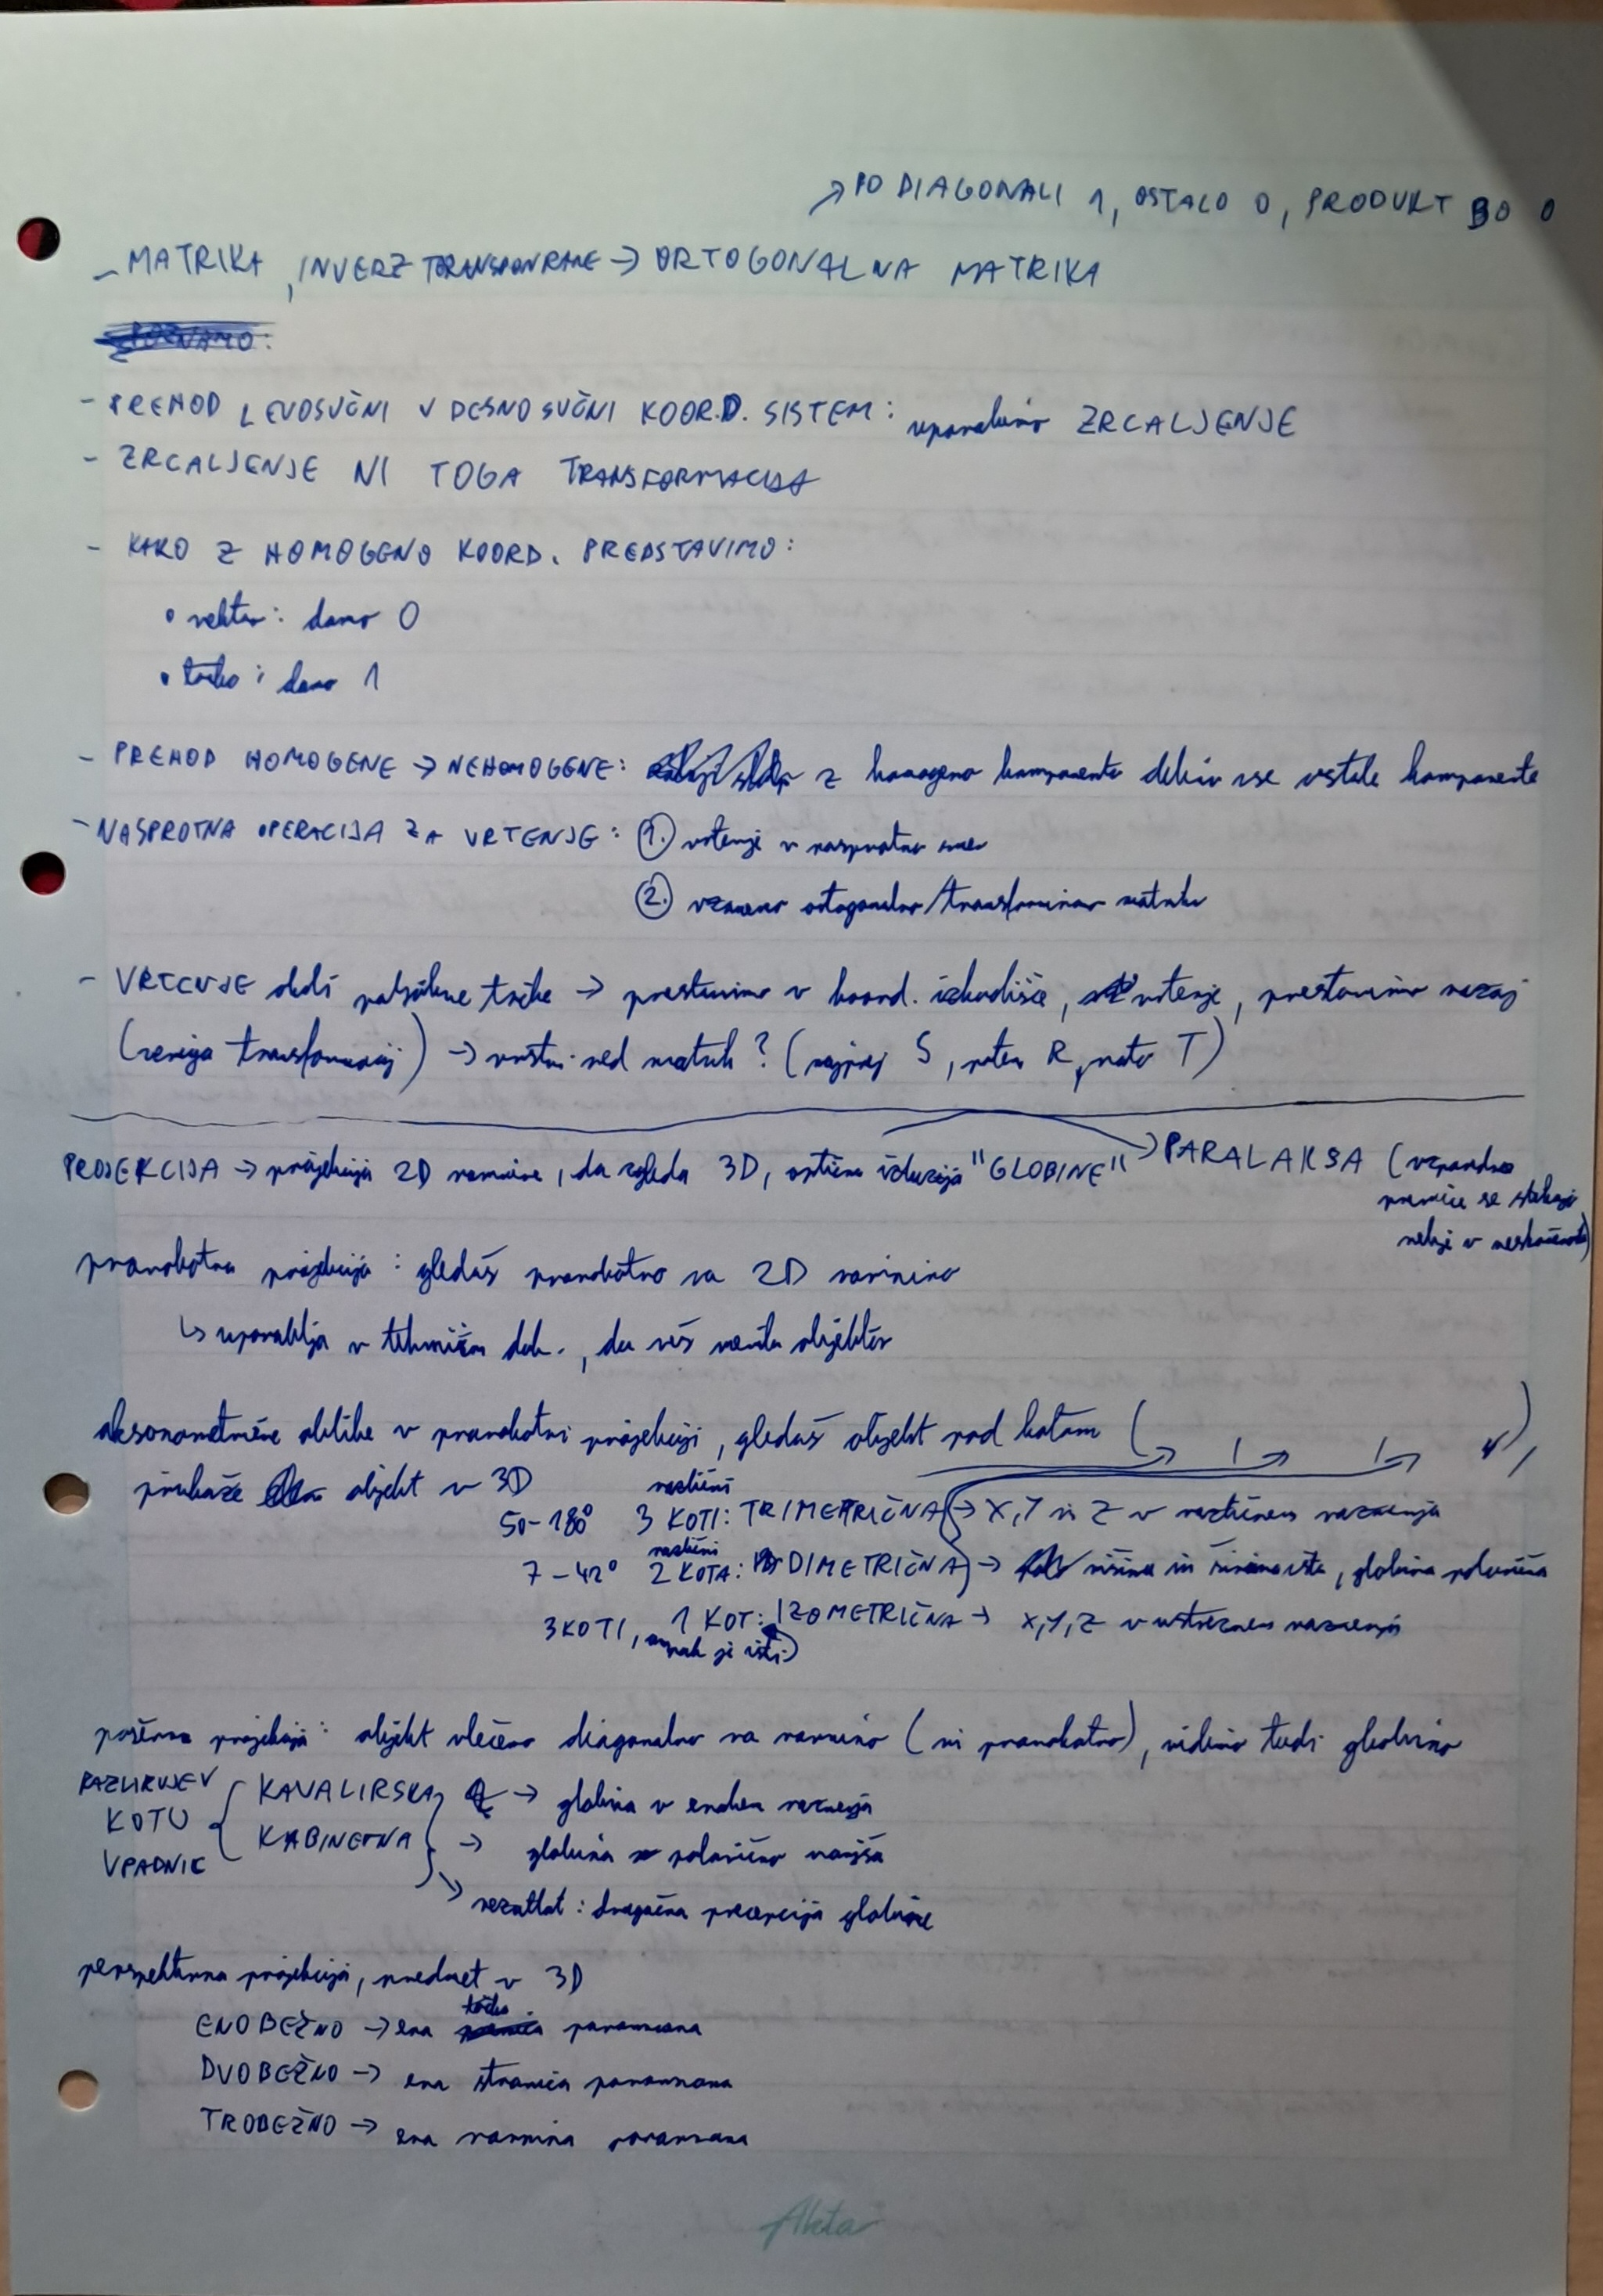 → PO DIAGONALI 1, OSTALO 0, PRODUKT BO 0
- MATRIKA, INVERZ TRANSPONIRANE → ORTOGONALNA MATRIKA
- PREHOD LEVOSUČNI V DESNOSUČNI KOORD. SISTEM: uporabimo ZRCALJENJE
- ZRCALJENJE NI TOGA TRANSFORMACIJA
- KAKO Z HOMOGENO KOORD. PREDSTAVIMO:
• vektor: damo 0
• točko: damo 1
- PREHOD HOMOGENE → NEHOMOGENE: z homogeno komponento delimo vse ostale komponente
- NASPROTNA OPERACIJA ZA VRTENJE: 1. vrtenje v nasprotno smer
2. vzamemo ortogonalno/transformirano matriko
- VRTENJE okoli poljubne točke → prestavimo v koord. izhodišče, vrtenje, prestavimo nazaj
(veriga transformacij) → vrstni red matrik? (najprej S, potem R, nato T)
PROJEKCIJA → projekcija 2D ravnine, da zgleda 3D, optična iluzija "GLOBINE" → PARALAKSA (vzporedne
premice se stikajo
nekje v neskončnosti)
pravokotna projekcija: gledaš pravokotno na 2D ravnino
↳ uporablja v tehnični dok., da veš mersko objektov
aksonometrične oblike v pravokotni projekciji, gledaš objekt pod kotom
prikaže objekt v 3D
50-180° 3 različni KOTI: TRIMETRIČNA → X, Y in Z v različnem razmerju
7-42° 2 različni KOTA: DIMETRIČNA → višina in širina ista, globina polovična
3 KOTI, ampak je isti 1 KOT: IZOMETRIČNA → X, Y, Z v ustreznem razmerju
poševna projekcija: objekt vlečeno diagonalno na ravnino (ni pravokotno), vidimo tudi globino
RAZLIKUJEV KOTU VPADNIC
KAVALIRSKA → globina v enakem razmerju
KABINETNA → globina polovično manjša
↘ rezultat: drugačna percepcija globine
perspektivna projekcija, predmet v 3D
ENOBEŽNO → ena točka poravnana
DVOBEŽNO → ena stranica poravnana
TROBEŽNO → ena ravnina poravnana
Akta